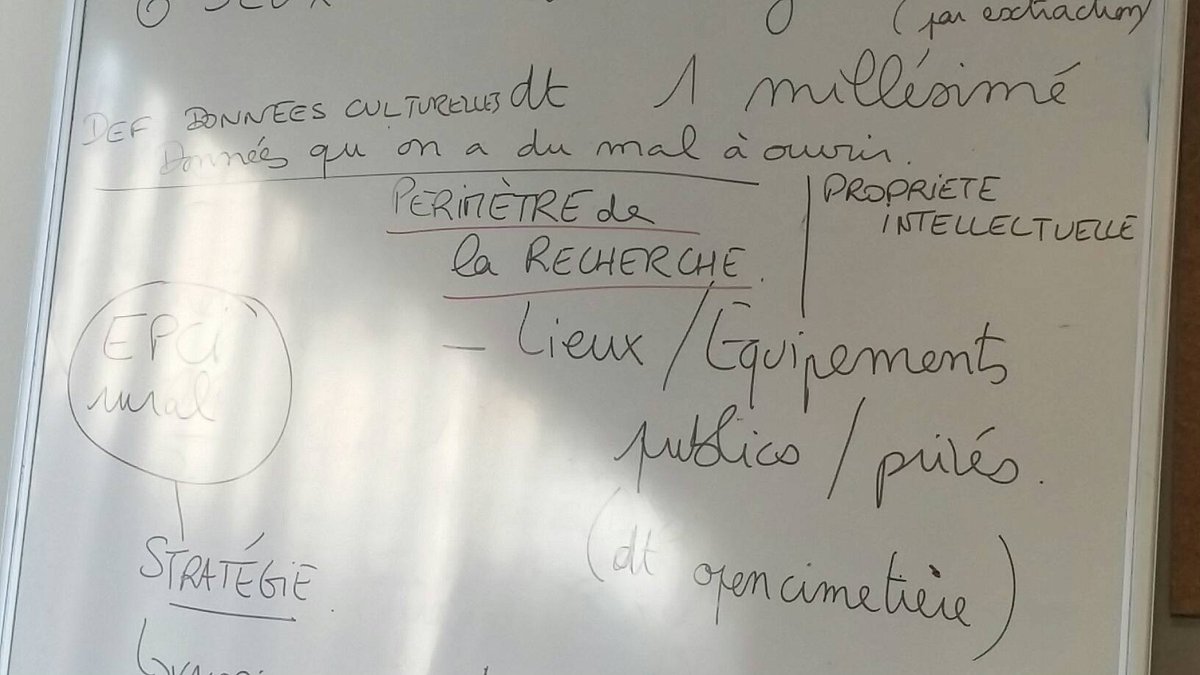 (par extraction)
DEF DONNEES CULTURELLES dt 1 millésimé
Données qu'on a du mal à ouvrir.
PERIMÈTRE de
la RECHERCHE.
PROPRIETE
INTELLECTUELLE
EPCi
rural
- Lieux / Équipements
publics / privés.
(dt opencimetière)
STRATÉGIE.